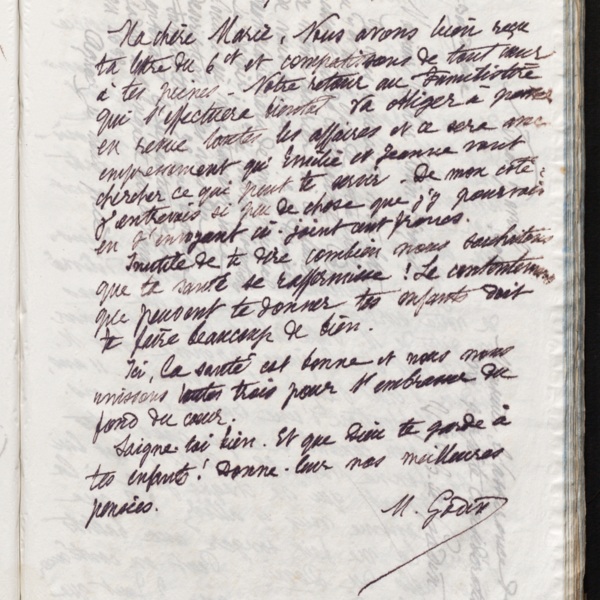 Ma chère Marie, Nous avons bien reçu
ta lettre du 6 ct et compatissons de tout cœur
à tes peines - Notre retour au Familistère
qui s'effectuera bientôt va obliger à passer
en revue toutes les affaires et ce sera avec
empressement qu'Emilie et Jeanne vont
chercher ce qui peut te servir. De mon côté
j'entrevois si peu de chose que j'y pourvois
en t'envoyant ci-joint cent francs.
Inutile de te dire combien nous souhaitons
que ta santé se raffermisse ! Le contentement
que peuvent te donner tes enfants doit
te faire beaucoup de bien.
Ici, la santé est bonne et nous nous
unissons toutes trois pour t'embrasser du
fond du cœur.
Soigne-toi bien. Et que Dieu te garde à
tes enfants ! Donne-leur nos meilleures
pensées.
M. Godin